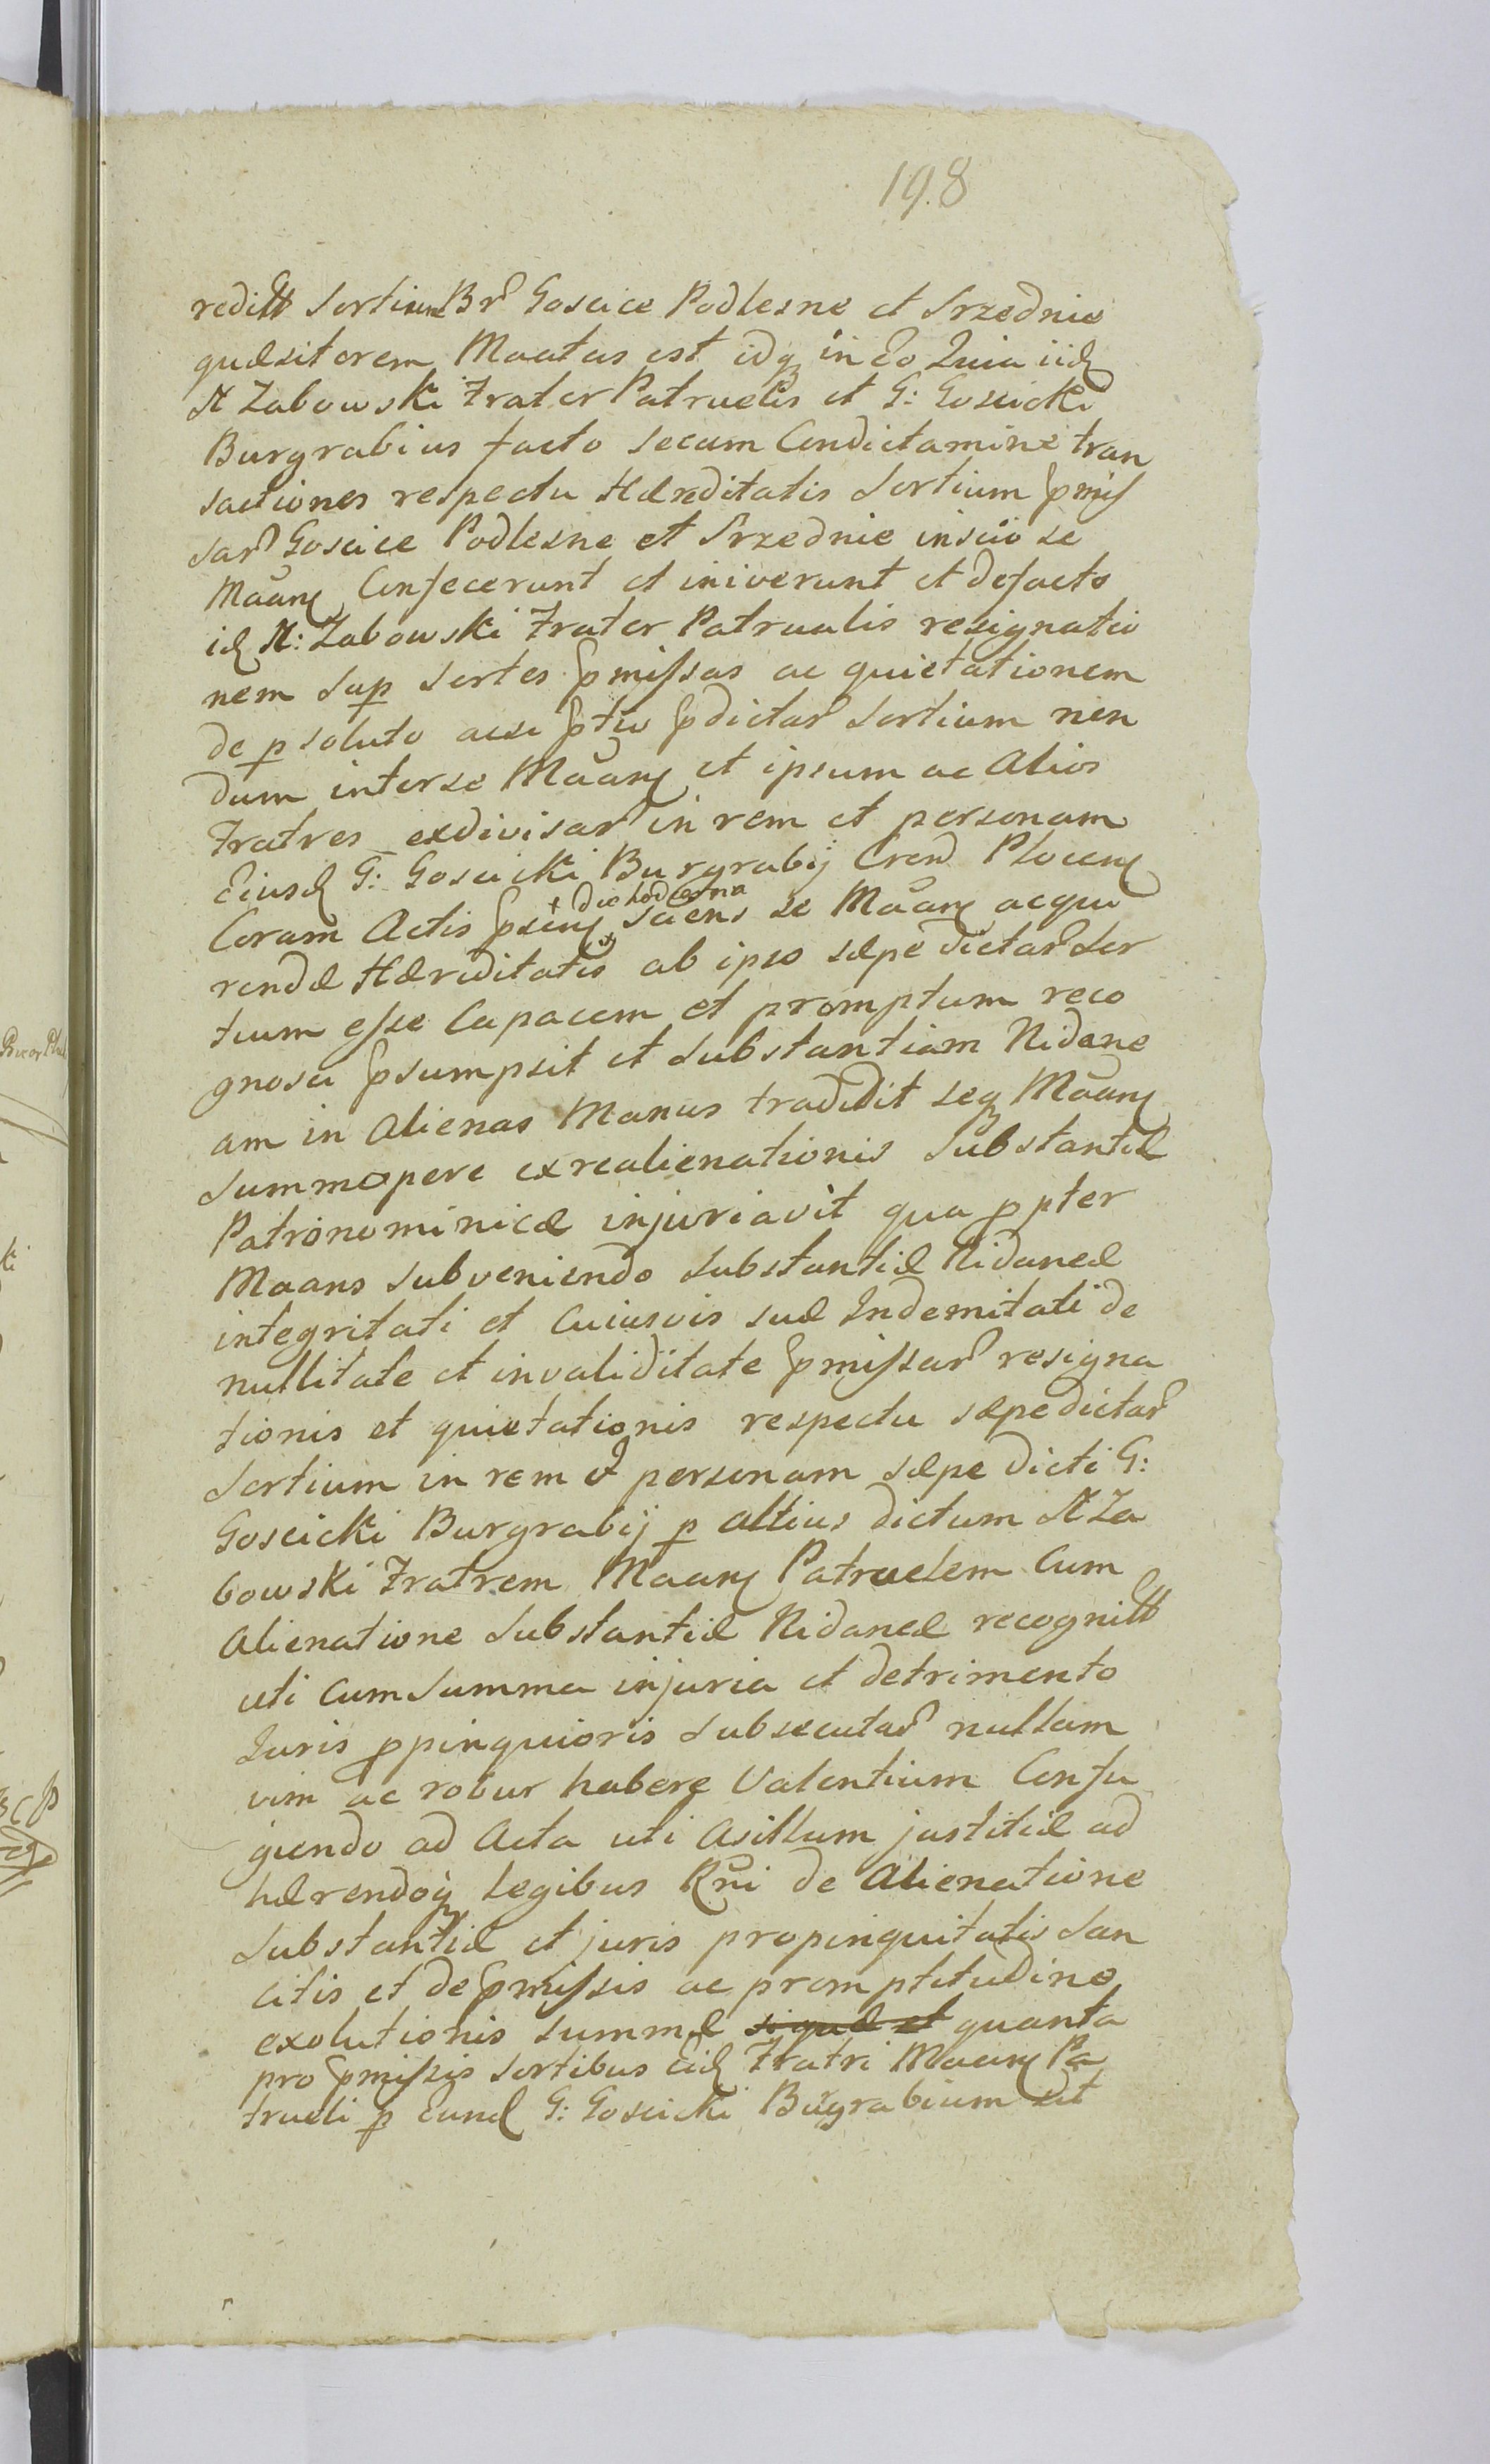 198
reditt Sortium Br Goscice Podlesne et Srzednie
quæsitorem Maatus est idq in Eo Quia iid
N Zabowski Frater Patruelis et G: Goscicki
Burgrabius facto secum Condictamine tran
sactiones respectu Hæreditatis Sortium pmis
sar Goscice Podlesne et Srzednie inscio se
Maan Confecerunt et iniverunt et defacto
id N: Zabowski Frater Patrualis resignatio
nem Sup Sortes pmissas ac quietationem
de p soluto acsi ptio pdictar Sortium non
dum inter se Maan et ipsum ac Alios
Fratres exdivisar in rem et personam
Eiusd G: Goscicki Burgrabij Cren Plocen
+ die hodierna
Coram Actis psen + sciens se Maan acqui
rendæ Hæreditatis ab ipso sæpe dictar Sor
tium esse Capacem et promptum reco
gnosci psumpsit et Substantiam Nidane
am in Alienas Manus tradidit seq Maan
Summopere exrealienationis Substantiæ
Patronominicæ injuriavit qua p pter
Maans subveniendo Substantiæ Nidaneæ
integritati et Cuiusvis suæ Indemitati de
nullitate et invaliditate pmissar resigna
tionis et quietationis respectu sæpe dictar
Sortium in rem et personam sæpe dicti G:
Goscicki Burgrabij p altius dictum N Za
bowski Fratrem Maan Patruelem Cum
Alienatione Substantiæ Nidaneæ recognitt
uti Cum Summa injuria et detrimento
Iuris ppinquioris Subsecutar nullam
vim ac robur habere Valentium Confu
giendo ad Acta uti Asillum justitiæ ad
hærendoq Legibus Rni de Alienatione
Substantiæ et juris propinquitatis San
citis et de pmissis ac promptitudine
exolutionis summæ siquæ et quanta
pro pmissis sortibus Eid Fratri Maan Pa
trueli p Eund G: Goscicki Burgrabium sit